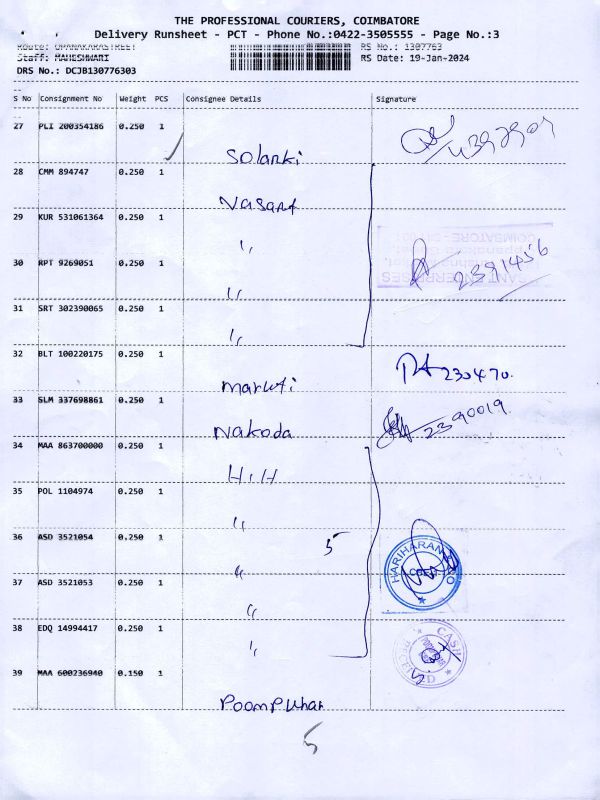 THE PROFESSIONAL COURIERS, COIMBATORE
Delivery Runsheet - PCT - Phone No.:0422-3505555 - Page No.:3
Route: OPANAKARASTREET RS No.: 1307763
Staff: MAHESHWARI RS Date: 19-Jan-2024
DRS No.: DCJB130776303
S No Consignment No Weight PCS Consignee Details Signature
27 PLI 200354186 0.250 1
Solanki
28 CMM 894747 0.250 1
Vasant
29 KUR 531061364 0.250 1
"
30 RPT 9269051 0.250 1 2391456
"
31 SRT 302390065 0.250 1
"
32 BLT 100220175 0.250 1 230470.
Maruti
33 SLM 337698861 0.250 1 2390019
Nakoda
34 MAA 863700000 0.250 1
H.H
35 POL 1104974 0.250 1
"
36 ASD 3521054 0.250 1 5
" HARIHARAN
37 ASD 3521053 0.250 1
"
38 EDQ 14994417 0.250 1 CASH
"
39 MAA 600236940 0.150 1
Poompuhar
5